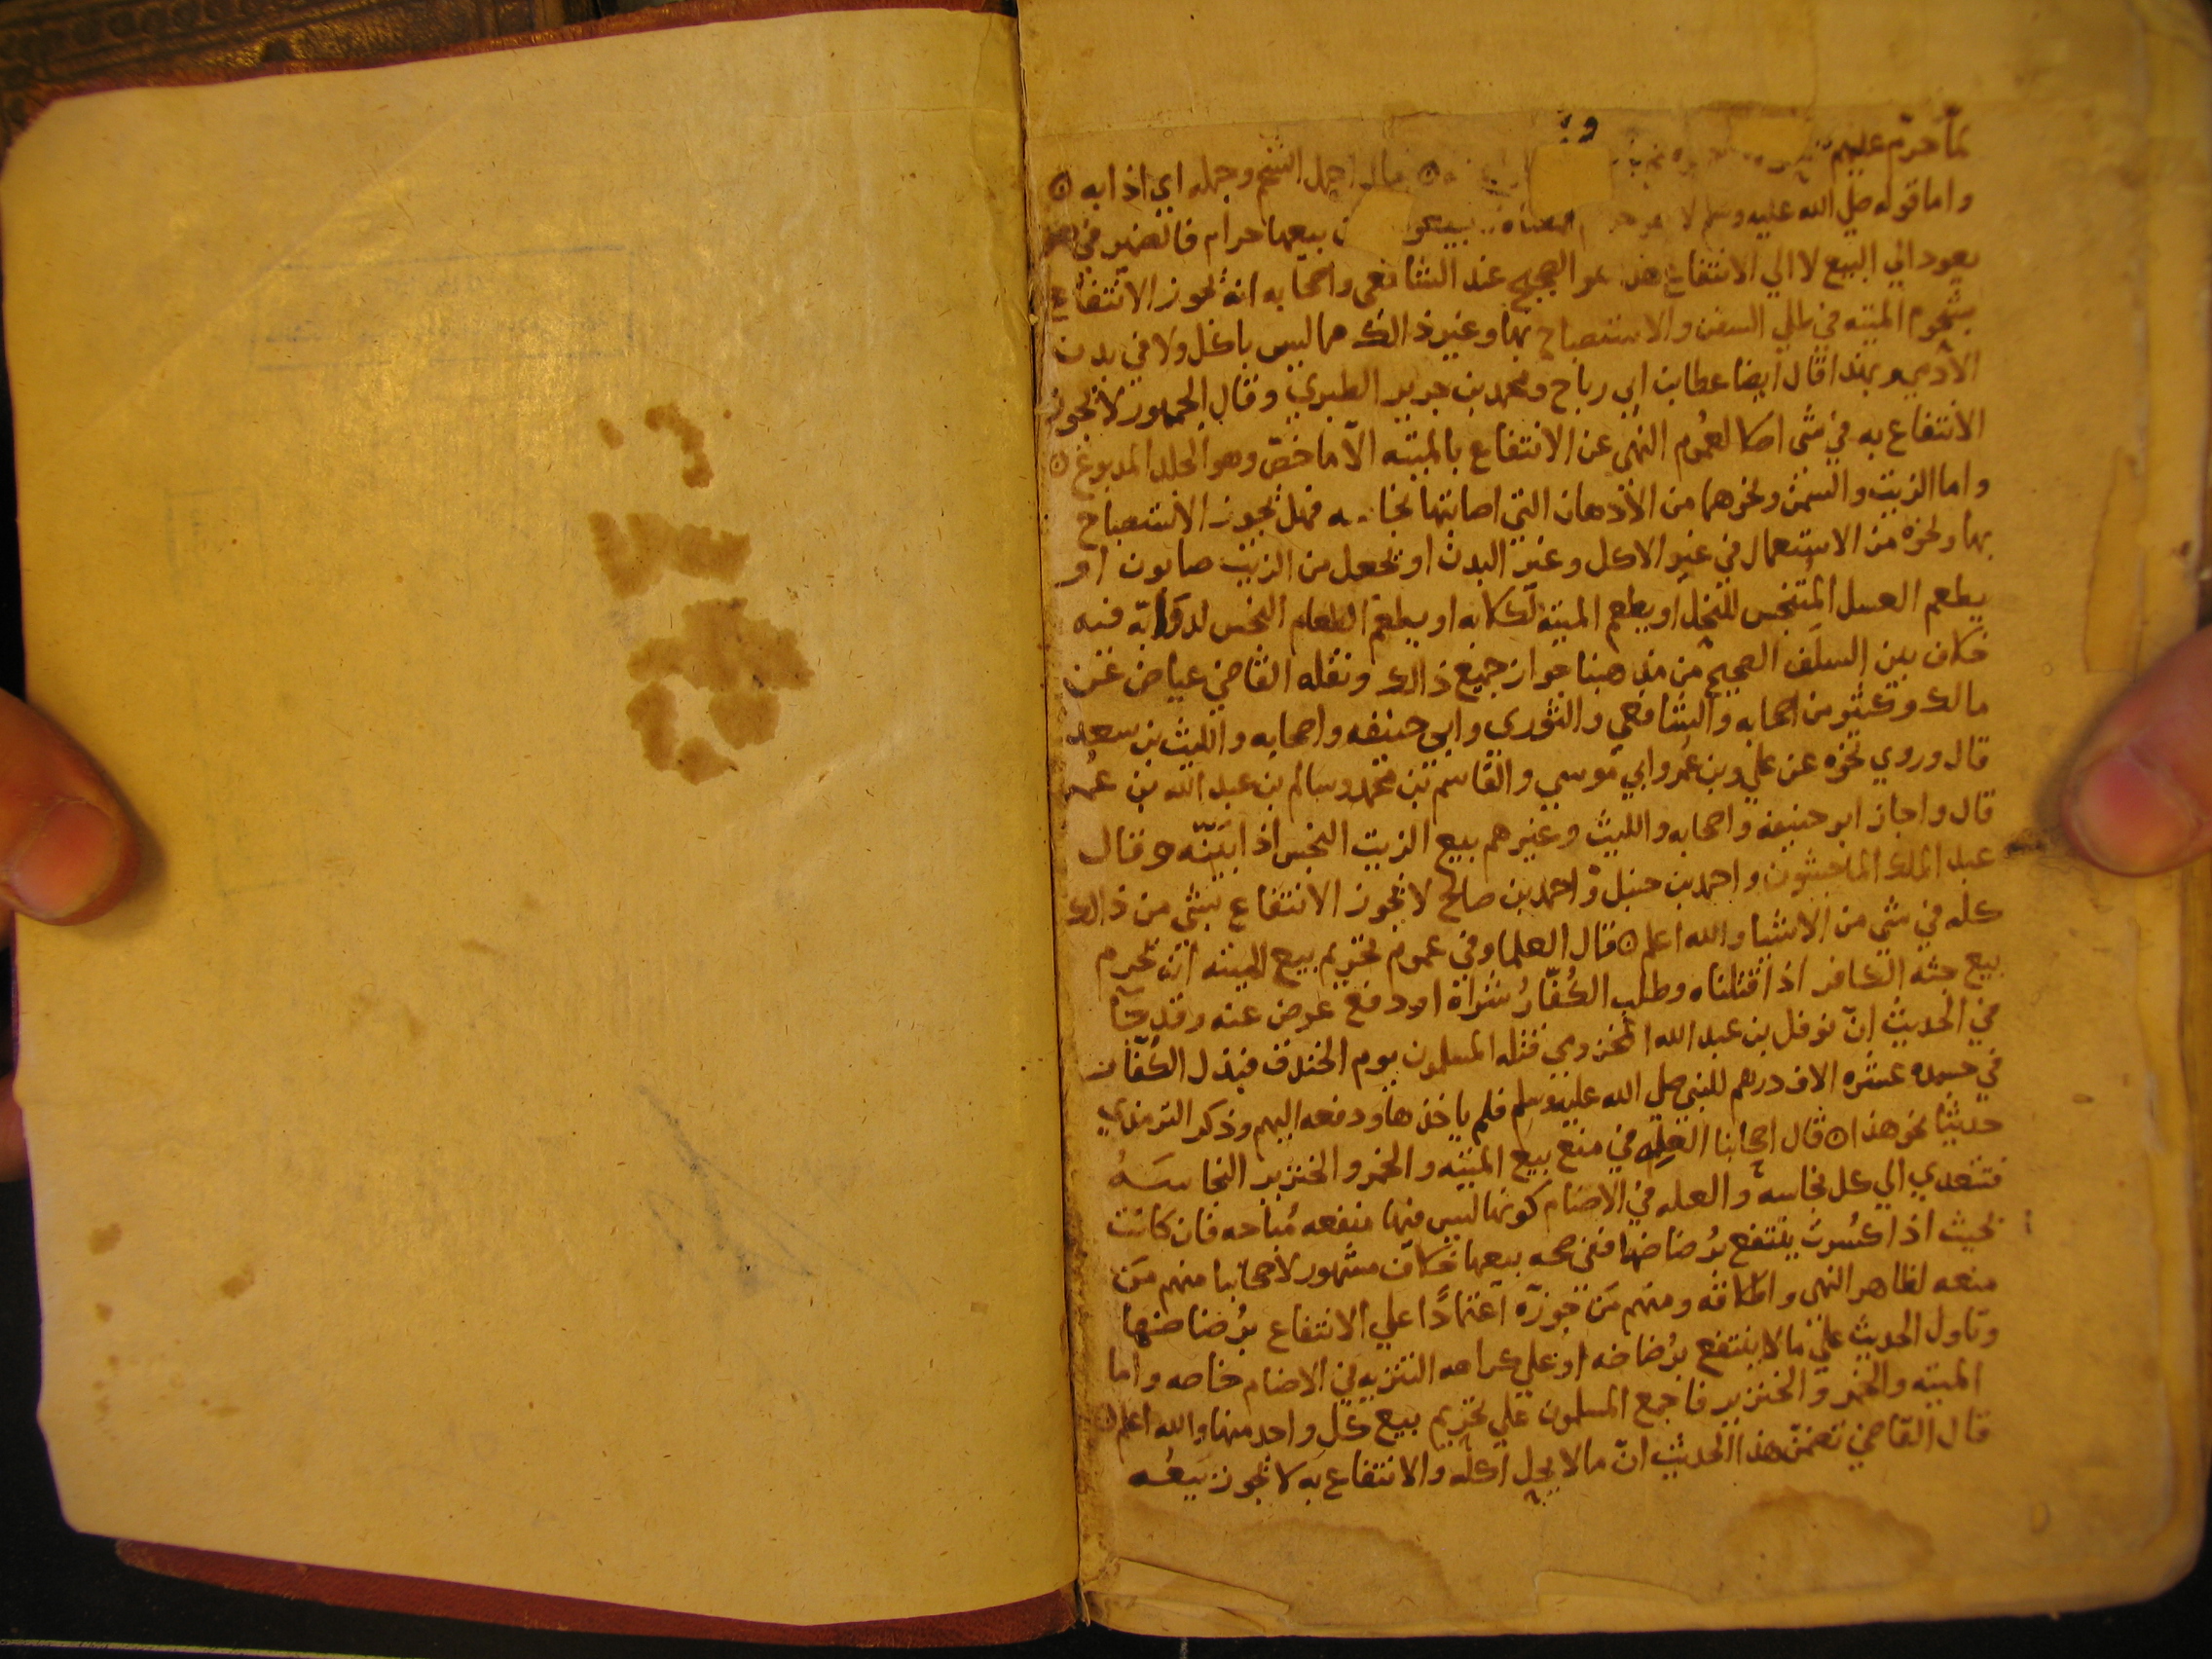 لما حرم عليهم يقال اجمل الشحم وجمله اي اذابه ه
واما قوله صلي الله عليه وسلم لا هو حرام فمعناه لا تبيعوها بيعها حرام فالضمير في هو
يعود الي البيع لا الي الانتفاع هذا هو الصحيح عند الشافعي واصحابه انه يجوز الانتفاع
بشحوم الميته في طلي السفن والاستصباح بها وغير ذالك مما ليس باكل ولا في بدن
الآدمي وبهذا قال ايضا عطا بن ابي رباح ومحمد بن جرير الطبري وقال الجمهور لا يجوز
الانتفاع به في شي اصلا لعموم النهي عن الانتفاع بالميته الا ما خصّ وهو الجلد المدبوغ ه
واما الزيت والسمن ونحوهما من الأدهان التي اصابتها نجاسه فهل يجوز الاستصباح
بها ونحوه من الاستعمال في غير الاكل وغير البدن او يجعل من الزيت صابون او
يطعم العسل المتنجس للنحل او يطعم الميته لكلابه او يطعم الطعام النجس لدوابه فيه
خلاف بين السلف الصحيح من مذهبنا جواز جميع ذالك ونقله القاضي عياض عن
مالك وكثير من اصحابه والشافعي والثوري وابي حنيفه واصحابه والليث بن سعد
قال وروي نحوه عن علي وبن عمر وابي موسي والقاسم بن محمد وسالم بن عبد الله بن عمر
قال واجاز ابو حنيفه واصحابه والليث وغيرهم بيع الزيت النجس اذا بيّنه وقال
عبد الملك الماجشون واحمد بن حنبل واحمد بن صالح لا يجوز الانتفاع بشي من ذالك
كله في شي من الاشيا والله اعلم ه قال العلما وفي عموم تحريم بيع الميته انه يحرم
بيع جثة الكافر اذا قتلناه وطلب الكُفّارُ شراة او دفع عوض عنه وقد جآ
في الحديث انّ نوفل بن عبد الله المخزومي قتله المسلمون يوم الخندق فبذل الكُفّار
في جسده عشره الاف درهم للنبي صلي الله عليه وسلم فلم ياخذها ودفعه اليهم وذكر الترمذي
حديثا نحو هذا ه قال اصحابنا العله في منع بيع الميته والخمر والخنزير النجاسَهُ
فتتعدي الي كل نجاسه والعله في الاصنام كونها ليس فيها منفعه مُباحه فان كانت
بحيث اذا كُسرت ينتفع برُضاضها ففي صحه بيعها خلاف مشهور لاصحابنا منهم مَن
منعه لظاهر النهي واطلاقه ومنهم مَن جوزه اعتمادًا علي الانتفاع برُضاضها
وتاول الحديث علي ما لا ينتفع برُضاضه او علي كراهه التنزيه في الاصنام خاصه واما
الميته والخمر والخنزير فاجمع المسلمون علي تحريم بيع كل واحد منها والله اعلم ه
قال القاضي تضمّن هذا الحديث انّ ما لا يحل اكله والانتفاع به لا يجوز بيعُه